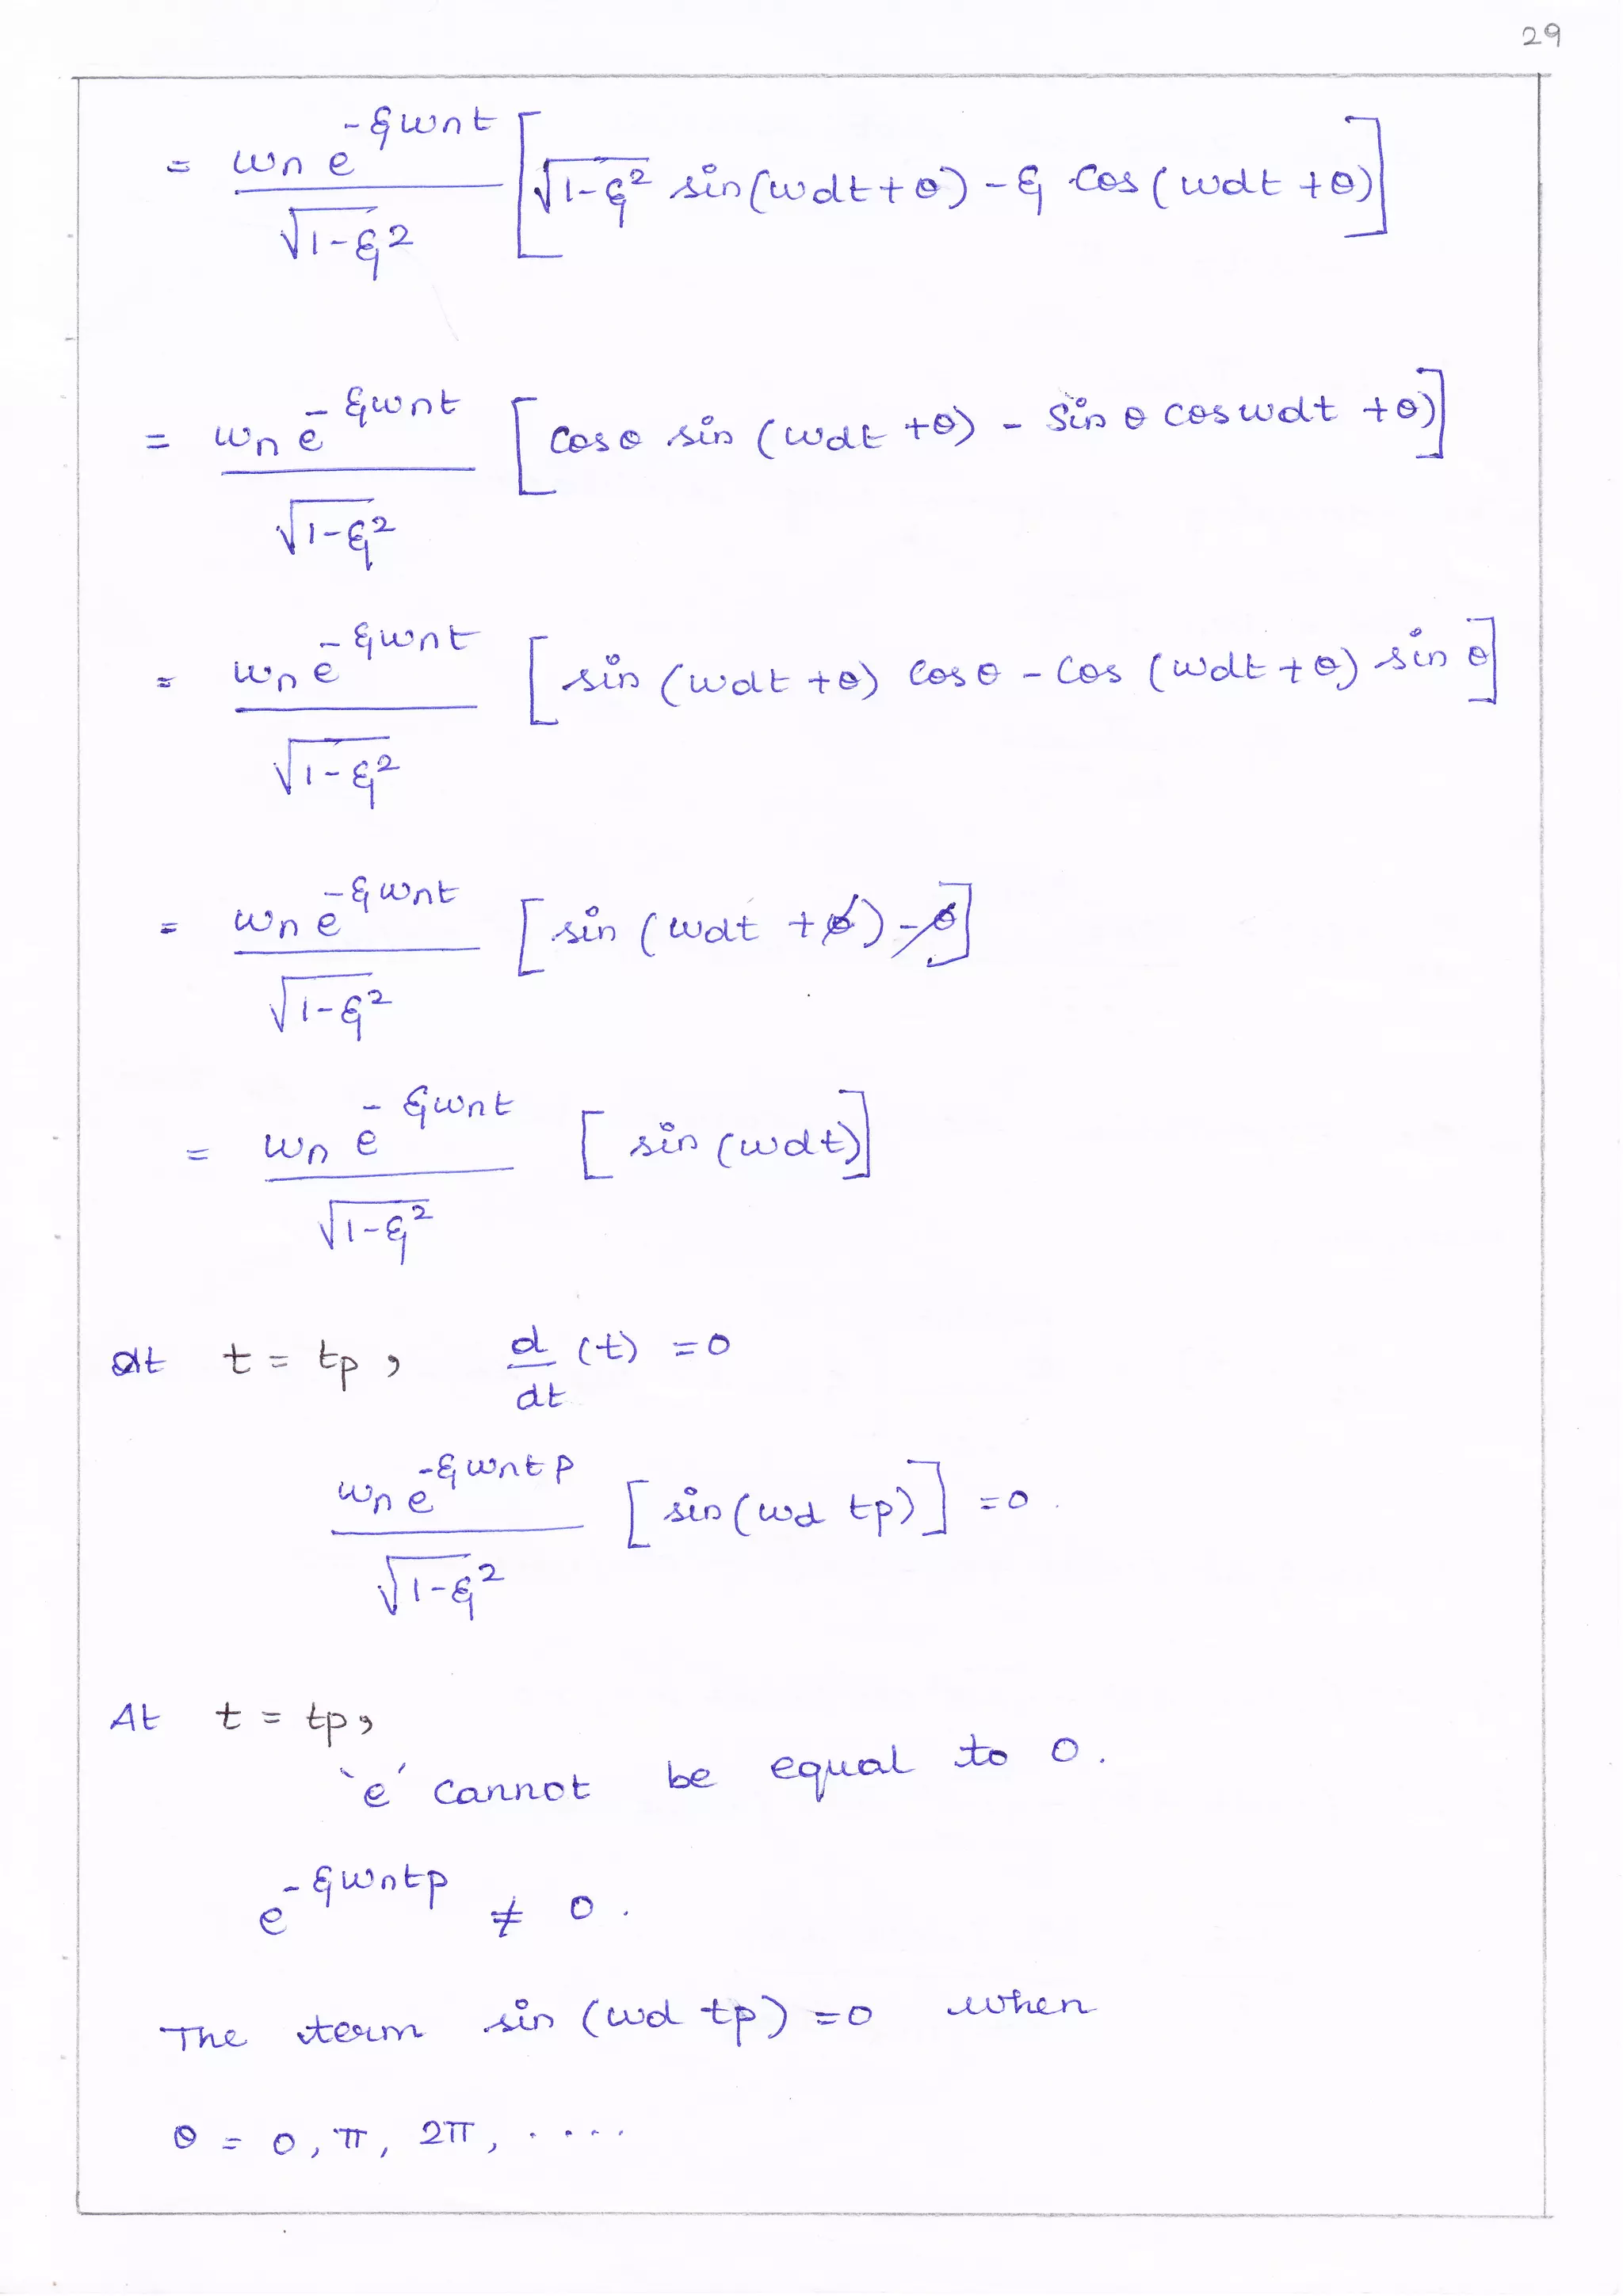 29
= ωn e^(-ξωnt) / √(1-ξ²) [√(1-ξ²) sin(ωdt+θ) - ξ cos(ωdt+θ)]
= ωn e^(-ξωnt) / √(1-ξ²) [cosθ sin(ωdt+θ) - sinθ cosωdt+θ)]
= ωn e^(-ξωnt) / √(1-ξ²) [sin(ωdt+θ) cosθ - cos(ωdt+θ) sinθ]
= ωn e^(-ξωnt) / √(1-ξ²) [sin(ωdt+θ)-θ]
= ωn e^(-ξωnt) / √(1-ξ²) [sin(ωdt)]
At t = tp, d/dt (t) = 0
ωn e^(-ξωntp) / √(1-ξ²) [sin(ωd tp)] = 0.
At t = tp,
'e' cannot be equal to 0.
e^(-ξωntp) ≠ 0.
The term sin(ωd tp) = 0 when
θ = 0, π, 2π, ....